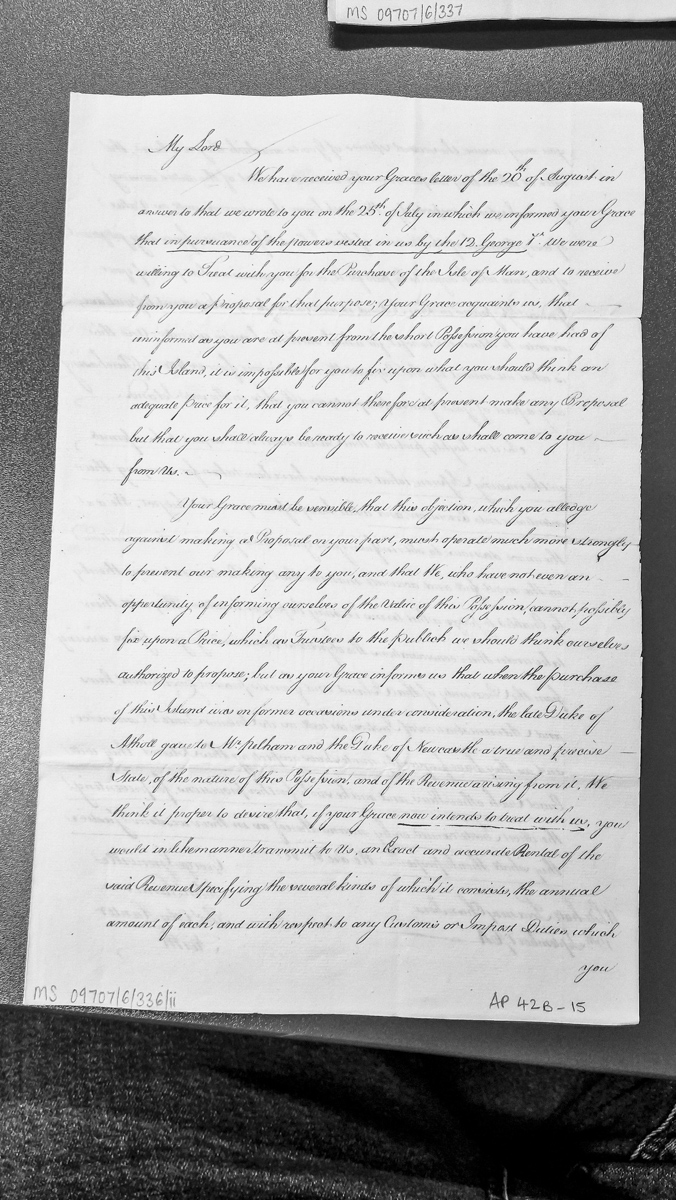 MS 09707/6/337
My Lord
We have received your Graces letter of the 20th of August in
answer to that we wrote to you on the 25th of July in which we informed your Grace
that in pursuance of the powers vested in us by the 12. George 1st We were
willing to Treat with you for the Purchase of the Isle of Man, and to receive
from you a Proposal for that purpose; Your Grace acquaints us, that
uninformed as you are at present from the short Possession you have had of
this Island, it is impossible for you to fix upon what you should think an
adequate price for it, that you cannot therefore at present make any Proposal
but that you shall always be ready to receive such as shall come to you
from Us.
Your Grace must be sensible, that this objection, which you alledge
against making a Proposal on your part, must operate much more strongly
to prevent our making any to you, and that We, who have not even an
opportunity of informing ourselves of the Value of this Possession, cannot possibly
fix upon a Price, which as Trustees to the publick we should think ourselves
authorized to propose; but as your Grace informs us that when the purchase
of this Island was on former occasions under consideration, the late Duke of
Atholl gave to Mr Pelham and the Duke of Newcastle a true and precise
State, of the nature of this Possession, and of the Revenue arising from it, We
think it proper to desire that, if your Grace now intends to treat with us, you
would in like manner transmit to Us, an Exact and accurate Rental of the
said Revenue, specifying the several kinds of which it consists, the annual
amount of each; and with respect to any Customs or Impost Duties, which
you
MS 09707/6/336/ii
AP 42B-15